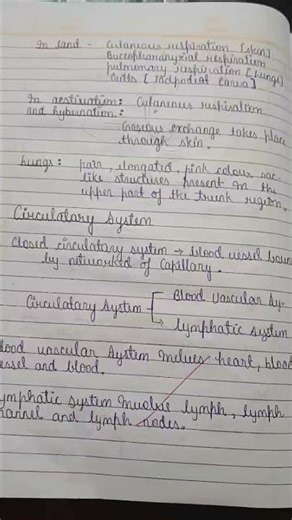 In land - Cutaneous respiration [skin]
Buccopharangeal respiration
pulmonary respiration [lungs]
Gills [Tadpodial larva]
In aestivation: Cutaneous respiration
and hybunation:
Gaseous exchange takes place
through skin.
Lungs: pair, elongated, pink colour sac
like structures present in the
upper part of the trunk region.
Circulatary System
Closed circulatary system → blood vessel boun
by networked of Capillary.
Circulatary System
Blood vascular Sy-
→ lymphatic system
lood vascular System Inclues heart, blood
essel and blood.
ymphatic system Inuolve lymph, lymph
hannel and lymph nodes.